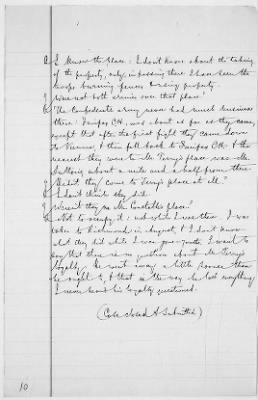 A I know the place. I don't know about the taking
of the property, only in passing there I have seen the
troops burning fences & using property.
Q Was not both armies over that place?
A The Confederate army never had much business
there: Fairfax CH. was about as far as they came,
except that after the first fight they came down
to Vienna, & then fall back to Fairfax CH. & the
nearest they were to Mr Terry's place was
about a mile and a half from there
Q Didn't they come to Terry's place at all?
A I don't think they did.
Q Wasn't they on Mr place?
A Not to occupy it: not while I was there. I was
taken to Richmond in August, & I don't know
what they did while I was gone. I want to
say that there is no question about Mr Terry's
loyalty. He went away a little sooner than
he ought to, & that is the way he lost everything
I never heard his loyalty questioned.
(Case closed & Submitted)
10